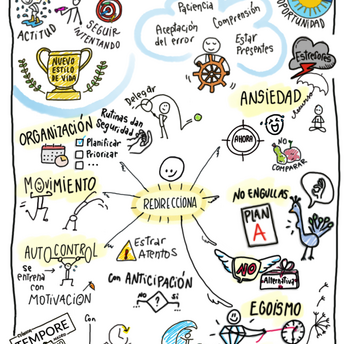 ACTITUD
SEGUIR
INTENTANDO
Paciencia
Comprensión
Aceptación
del error
Estar
Presentes
OPORTUNIDAD
NUEVO
ESTILO
DE VIDA
Estresores
Delegar
ANSIEDAD
Rutinas dan
Seguridad
ORGANIZACIÓN
Planificar
Priorizar
...
AHORA
NO
COMPARAR
MOVIMIENTO
REDIRECCIONA
NO ENGULLAS
PLAN
A
AUTOCONTROL
se
entrena
con
MOTIVACIÓN
Estrar
ATENTOS
NO
Alternativa
con ANTICIPACIÓN
No ? Si
EGOÍSMO
TEMPORE
Con